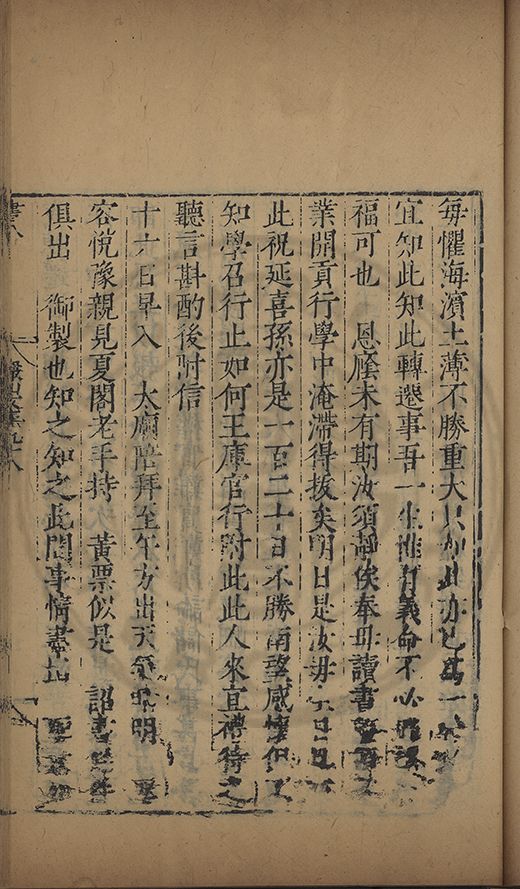 每懼海濱土薄不勝重大只如此亦已為一
宜知此知此轉遷事吾一生惟有義命不必
福可也　恩廕未有期汝須靜俟奉母讀書
業開貢行學中淹滯得拔矣明日是汝母
此祝延喜孫亦是一百二十日不勝南望感懷但
知學召行止如何王庫官行附此此人來宜禮待之
聽言斟酌後附信
十六日早入　太廟陪拜至午方出天氣晴明
容悅豫親見夏閣老手持　黃票似是　詔書
俱出　御製也知之知之此間事情盡出